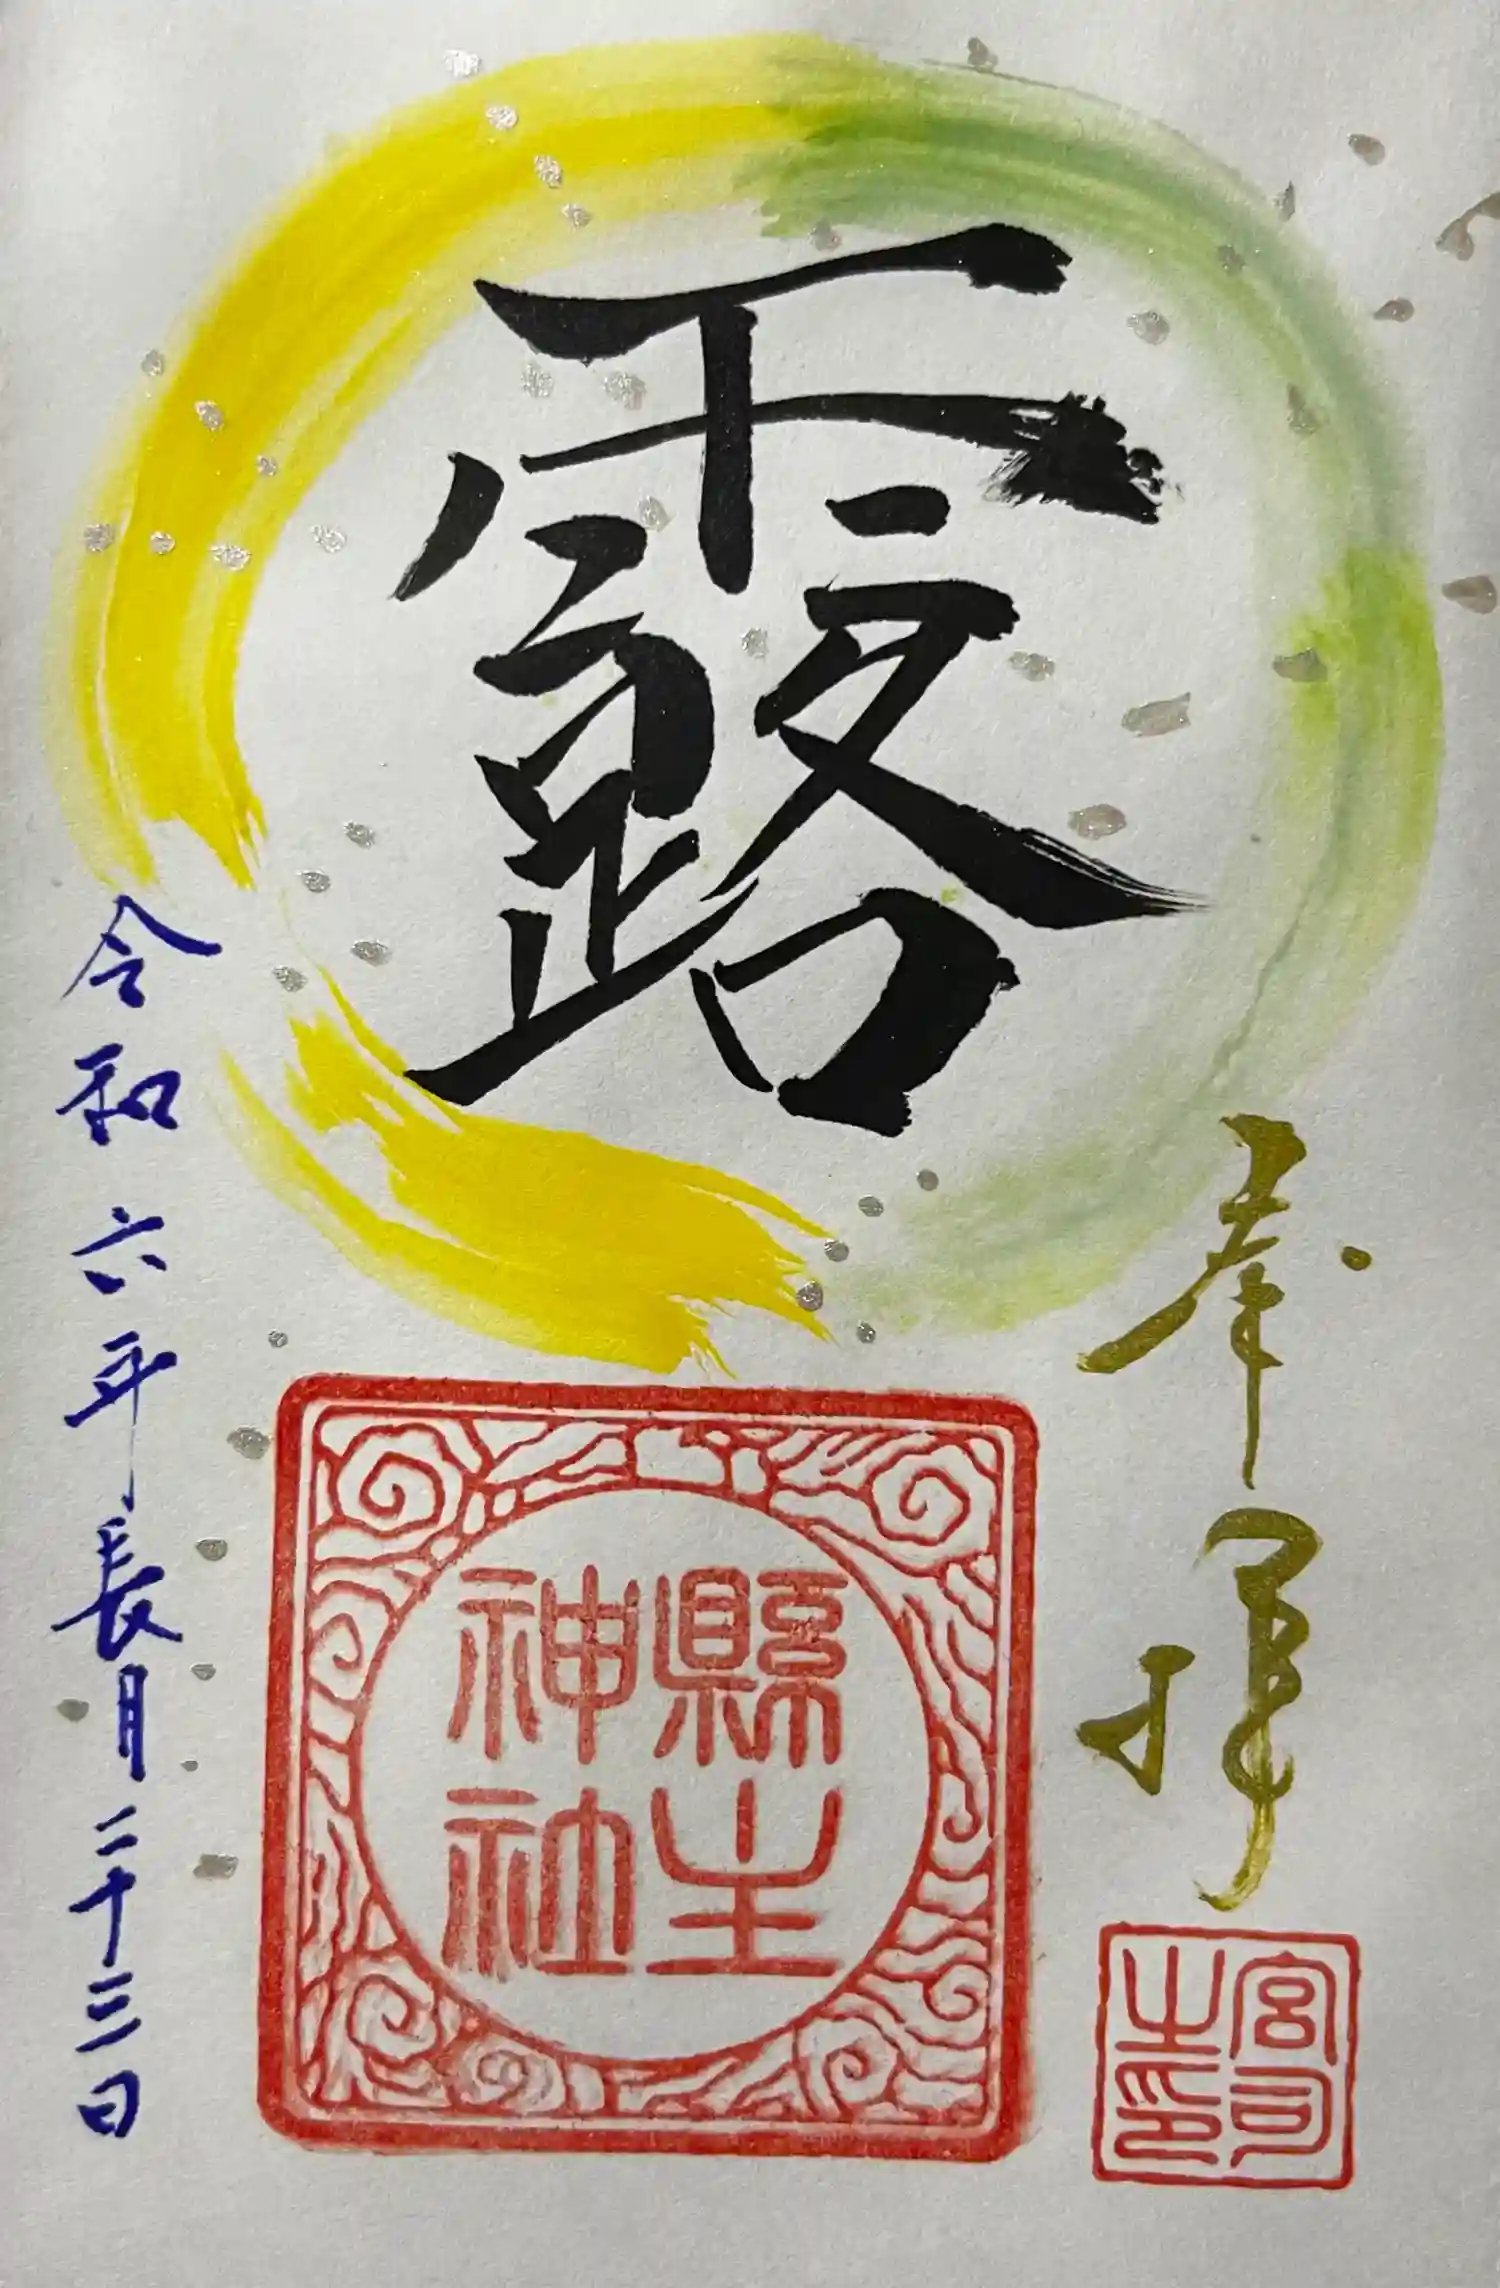 奉拝
露
縣主
神社
宮司
之印
令和六年長月二十三日